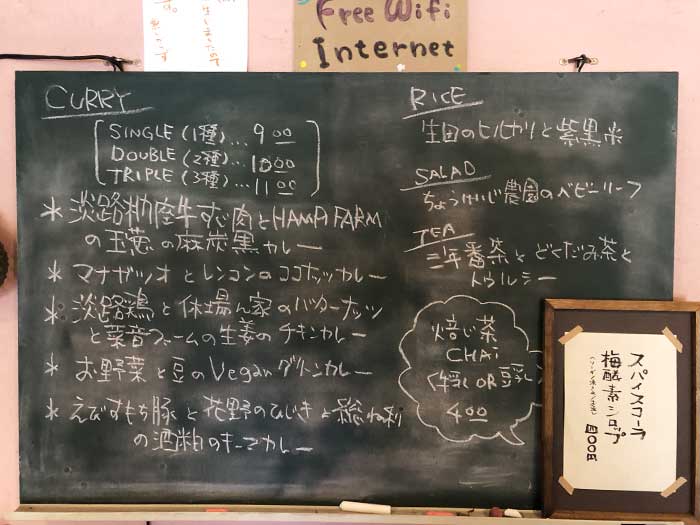 Free Wifi
Internet
CURRY
SINGLE (1種)... 900
DOUBLE (2種)... 1000
TRIPLE (3種)... 1100
* 淡路 牛すじ肉とHAMPI FARM
の玉葱の麻炭黒カレー
* マナガツオとレンコンのココナッツカレー
* 淡路鶏と休場ん家のバターナッツ
と菜音ファームの生姜のチキンカレー
* お野菜と豆のVeganグリーンカレー
* えびすもち豚と花野のひじきと總乃利
の酒粕のキーマカレー
RICE
生田のヒノヒカリと紫黒米
SALAD
農園のベビーリーフ
TEA
三年番茶とどくだみ茶と
トゥルシー
焙じ茶
CHAi
(牛乳 OR 豆乳)
400
スパイスコーラ
梅酵素シロップ
400円